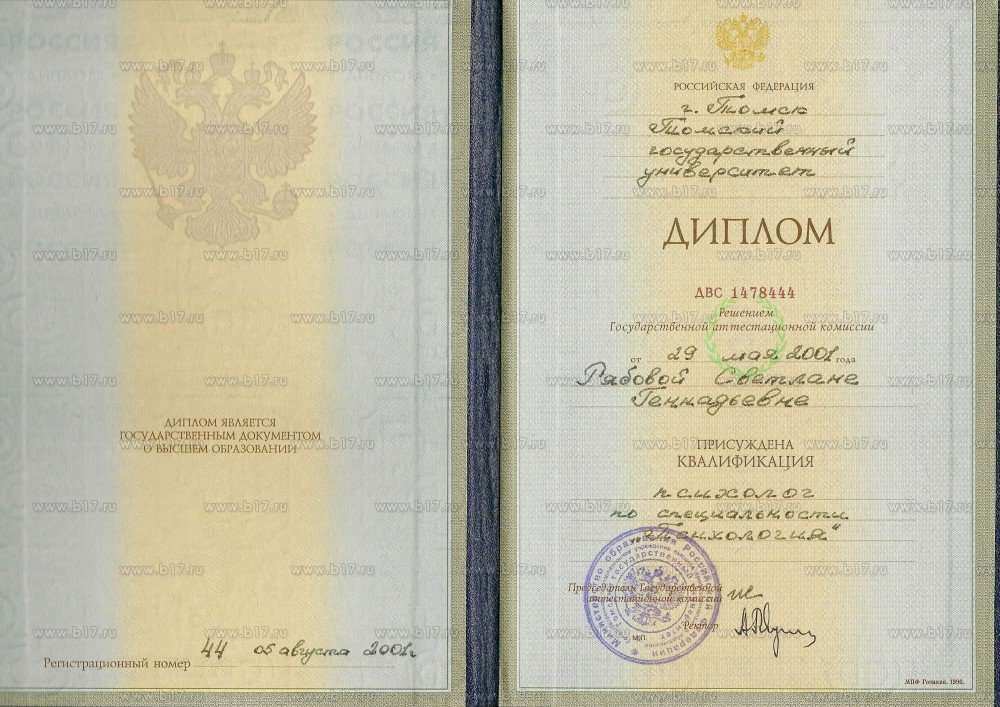 ДИПЛОМ ЯВЛЯЕТСЯ
ГОСУДАРСТВЕННЫМ ДОКУМЕНТОМ
О ВЫСШЕМ ОБРАЗОВАНИИ
Регистрационный номер 44 05 августа 2001г.
РОССИЙСКАЯ ФЕДЕРАЦИЯ
г. Томск
Томский
государственный
университет
ДИПЛОМ
ДВС 1478444
Решением
Государственной аттестационной комиссии
от 29 мая 2001 года
Рябовой Светлане
Геннадьевне
ПРИСУЖДЕНА
КВАЛИФИКАЦИЯ
психолог
по специальности
„Психология"
Председатель Государственной
аттестационной комиссии
Ректор
М.П.
МПФ Гознака. 1996.
www.b17.ru